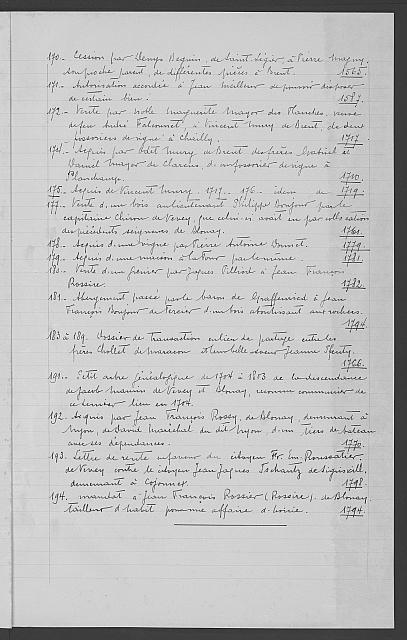 170.- Cession par Denys Beguin, de Saint-Légier, à Pierre Mugny,
son proche parent, de différentes pièces à Brent. 1565.
171.- Autorisation accordée à Jean Meilleur de pouvoir disposer
de certain bien. 1587.
172.- Vente par noble Marguerite Mayor des Planches, veuve
de feu André Falconnet, à Vincent Mury de Brent, de deux
fossoriers de vigne à Chailly. 1717.
174.- Acquis par Odet Mury, de Brent, des frères Gabriel et
Daniel Mayor de Clarens, d'un fossorier de vigne à
Planchamp. 1710.
175.- Acquis de Vincent Mury. 1717.- 176.- idem de 1719.
177.- Vente d'un bois au lieutenant Philippe Bonjour par le
capitaine Chiron de Vevey, que celui-ci avait eu par subhastation
des précédents seigneurs de Blonay. 1761.
178.- Acquis d'une vigne par Pierre Antoine Bonnet. 1779.
179.- Acquis d'une maison à la Tour par le même. 1781.
180.- Vente d'un grenier par Jaques Pilliod à Jean François
Rossire. 1782.
181.- Abergement passé par le baron de Graffenried à Jean
François Bonjour de Tercier d'un bois aboutissant aux rochers.
1794.
183 à 189. Dossier de Transactions en lieu de partage entre les
frères Chollet de Maracon et leur belle soeur Jeanne
1766.
191.- Petit arbre généalogique de 1704 à 1803 de la descendance
de Jacob Mamin de Vevey et Blonay, reconnu communier de
ce dernier lieu en 1704.
192.- Acquis par Jean François Rossy, de Blonay, demeurant à
Nyon, de David Maréchal du dit Nyon, d'un tiers de bateau
avec ses dépendances. 1770.
193. Lettre de rente en faveur du citoyen Fr. Em. Roussatier,
de Vevey contre le citoyen Jean Jaques Tschantz de Sigriswill,
demeurant à 1798.
194. mandat à Jean François Rossier (Rossire) de Blonay,
tailleur d'habit pour une affaire d'hoirie. 1794.